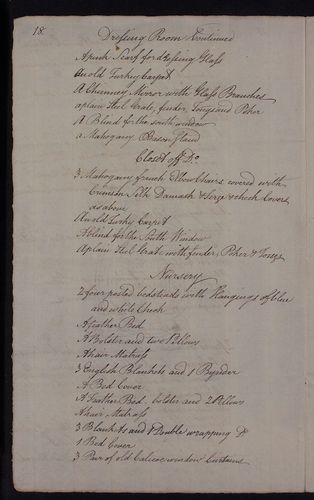 18
Dressing Room Continued
A pink Scarf for dressing Glass
An old Turkey Carpet
A Chimney Mirror with Glass Branches
a plain Steel Grate, fender Tongs and Poker
A Blind for the south window
a Mahogany Bason Stand
Closet off Do.
3 Mahogany french Elbow Chairs, covered with
Crimson Silk Damask & Serge & check Covers
as above
An old Turky Carpet
A blind for the South Window
A plain Steel Grate with fender, Poker & Tongs
Nursery
2 four posted bedsteads with Hangings of blue
and white Check
A feather Bed
A Bolster and two Pillows
A hair Matrass
3 English Blankets and 1 Bynder
A Bed Cover
A Feather Bed bolster and 2 Pillows
A hair Matrass
3 Blankets and 1 Double wrapping Do
1 Bed Cover
3 Pair of old Calicoe window Curtains